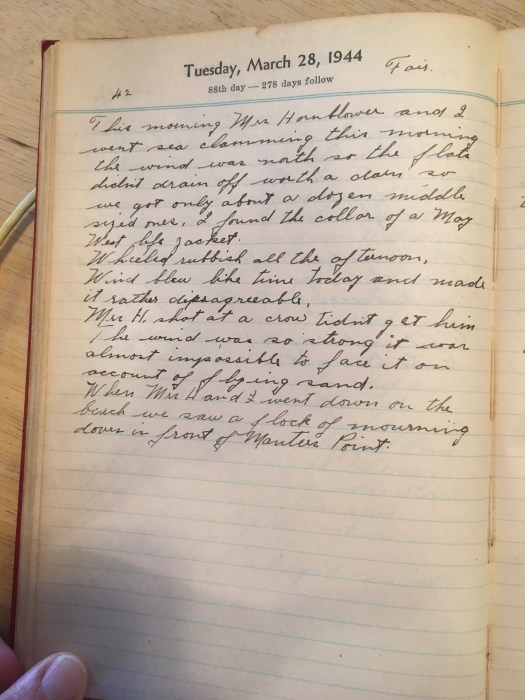 Tuesday, March 28, 1944
Fair.
88th day — 278 days follow
42
This morning Mrs Hornblower and I
went sea clamming this morning
the wind was north so the flats
didn't drain off worth a darn so
we got only about a dozen middle
sized ones, I found the collar of a May
West life jacket.
Wheeled rubbish all the afternoon,
Wind blew like time today and made
it rather disagreeable,
Mrs H. shot at a crow tidnt get him
The wind was so strong it was
almost impossible to face it on
account of flying sand.
When Mrs H and I went down on the
beach we saw a flock of mourning
doves in front of Manters Point.